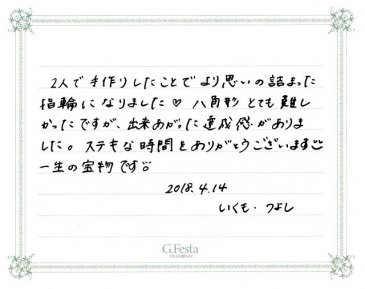 2人で手作りしたことでより思いの詰まった
指輪になりました♡ 八角形とても難し
かったですが、出来あがった達成感がありま
した。ステキな時間をありがとうございます
一生の宝物です
2018.4.14
いくも・つよし
G.Festa
DIAMOND